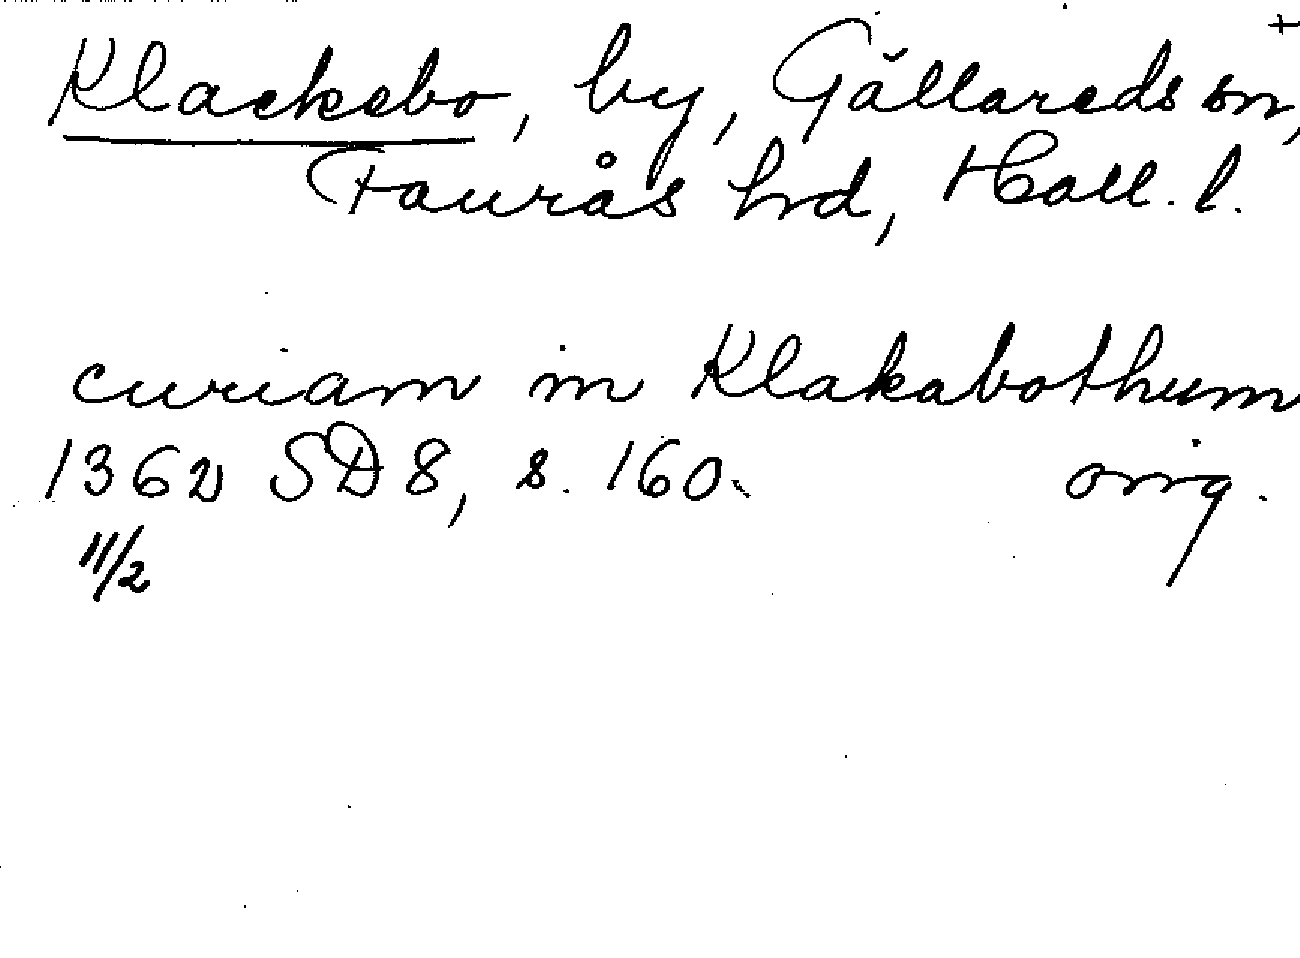 +
Klackebo, by, Gällareds sn,
Faurås hd, Hall. l.
curiam in Klakabothum
1362 SD 8, s. 160. orig.
11/2